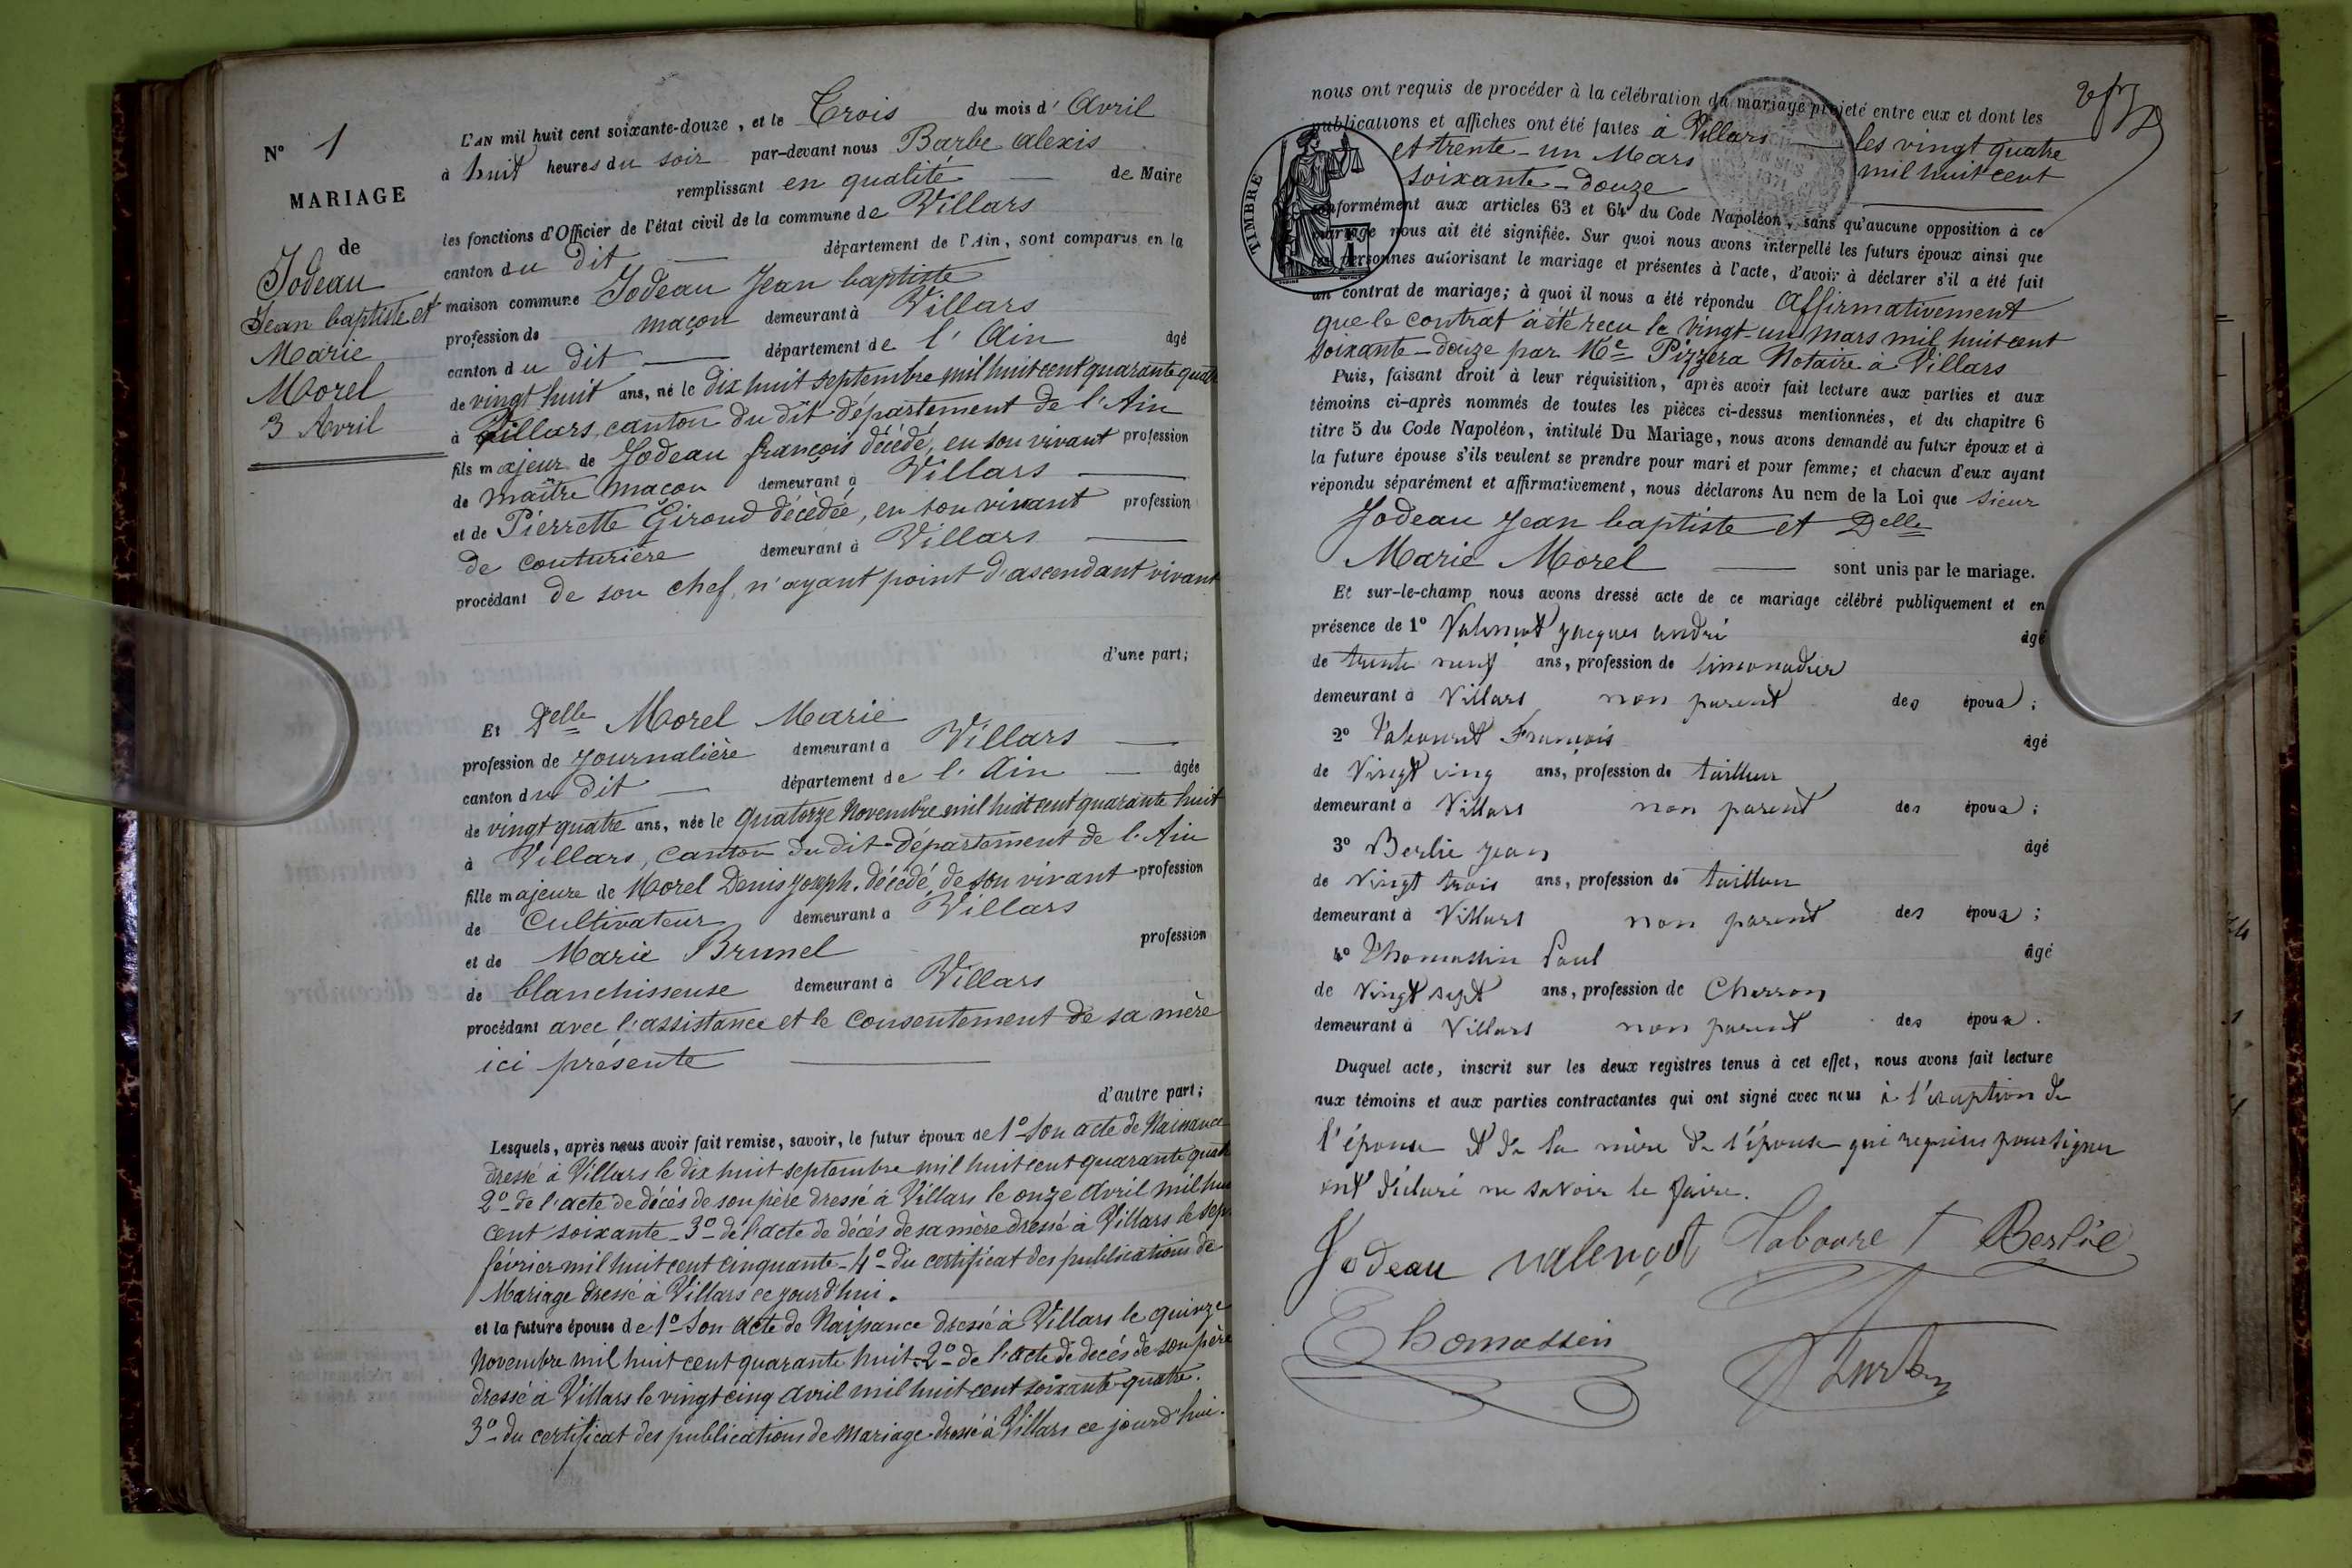 N° 1
MARIAGE
de
Jodeau
Jean baptiste et
Marie
Morel
3 Avril
L'AN mil huit cent soixante-douze, et le Trois du mois d' Avril
à huit heures du soir par-devant nous Barbe Alexis
remplissant en qualité de Maire
les fonctions d'Officier de l'état civil de la commune de Villars
canton du dit département de l'Ain, sont comparus en la
maison commune Jodeau Jean baptiste
profession de maçon demeurant à Villars
canton du dit département de l'Ain âgé
de vingt huit ans, né le dix huit septembre mil huit cent quarante quatre
à Villars, canton du dit département de l'Ain
fils majeur de Jodeau françois décédé, en son vivant profession
de maître maçon demeurant à Villars
et de Pierrette Giroud décédée, en son vivant profession
de couturière demeurant à Villars
procédant de son chef, n'ayant point d'ascendant vivant
d'une part;
Et Delle Morel Marie
profession de journalière demeurant à Villars
canton du dit département de l'Ain âgée
de vingt quatre ans, née le quatorze Novembre mil huit cent quarante huit
à Villars, canton du dit département de l'Ain
fille majeure de Morel Denis Joseph, décédé, de son vivant profession
de Cultivateur demeurant à Villars
et de Marie Brunel profession
de blanchisseuse demeurant à Villars
procédant avec l'assistance et le consentement de sa mère
ici présente
d'autre part;
Lesquels, après nous avoir fait remise, savoir, le futur époux de 1° Son acte de Naissance
dressé à Villars le dix huit septembre mil huit cent quarante quatre
2° de l'acte de décès de son père dressé à Villars le onze Avril mil huit
cent soixante - 3° de l'acte de décés de sa mère dressé à Villars le sept
février mil huit cent cinquante - 4° du certificat des publications de
Mariage dressé à Villars ce jourd'hui.
et la future épouse de 1° Son acte de Naissance dressé à Villars le quinze
Novembre mil huit cent quarante huit - 2° de l'acte de decés de son père
dressé à Villars le vingt cinq avril mil huit cent soixante quatre.
3° du certificat des publications de mariage dressé à Villars ce jourd'hui.
nous ont requis de procéder à la célébration du mariage projeté entre eux et dont les
publications et affiches ont été faites à Villars les vingt quatre
et trente-un Mars mil huit cent
soixante-douze
conformément aux articles 63 et 64 du Code Napoléon, sans qu'aucune opposition à ce
mariage nous ait été signifiée. Sur quoi nous avons interpellé les futurs époux ainsi que
les personnes autorisant le mariage et présentes à l'acte, d'avoir à déclarer s'il a été fait
un contrat de mariage; à quoi il nous a été répondu Affirmativement
que le contrat à été reçu le vingt-un mars mil huit cent
soixante-douze par Me Pizzera Notaire à Villars
Puis, faisant droit à leur réquisition, après avoir fait lecture aux parties et aux
témoins ci-après nommés de toutes les pièces ci-dessus mentionnées, et du chapitre 6
titre 5 du Code Napoléon, intitulé Du Mariage, nous avons demandé au futur époux et à
la future épouse s'ils veulent se prendre pour mari et pour femme; et chacun d'eux ayant
répondu séparément et affirmativement, nous déclarons Au nom de la Loi que sieur
Jodeau Jean baptiste et Delle
Marie Morel sont unis par le mariage.
Et sur-le-champ nous avons dressé acte de ce mariage célébré publiquement et en
présence de 1° Valençot Jacques André âgé
de trente neuf ans, profession de limonadier
demeurant à Villars non parent des époux;
2° Tabouret François âgé
de Vingt cinq ans, profession de tailleur
demeurant à Villars non parent des époux;
3° Berlie Jean âgé
de Vingt trois ans, profession de tailleur
demeurant à Villars non parent des époux;
4° Thomassin Paul âgé
de Vingt sept ans, profession de Charron
demeurant à Villars non parent des époux.
Duquel acte, inscrit sur les deux registres tenus à cet effet, nous avons fait lecture
aux témoins et aux parties contractantes qui ont signé avec nous à l'exception de
l'épouse et de la mère de l'épouse qui requises pour signer
ont déclaré ne savoir le faire.
Jodeau Valençot Taboure t Berlie
Thomassin
TIMBRE